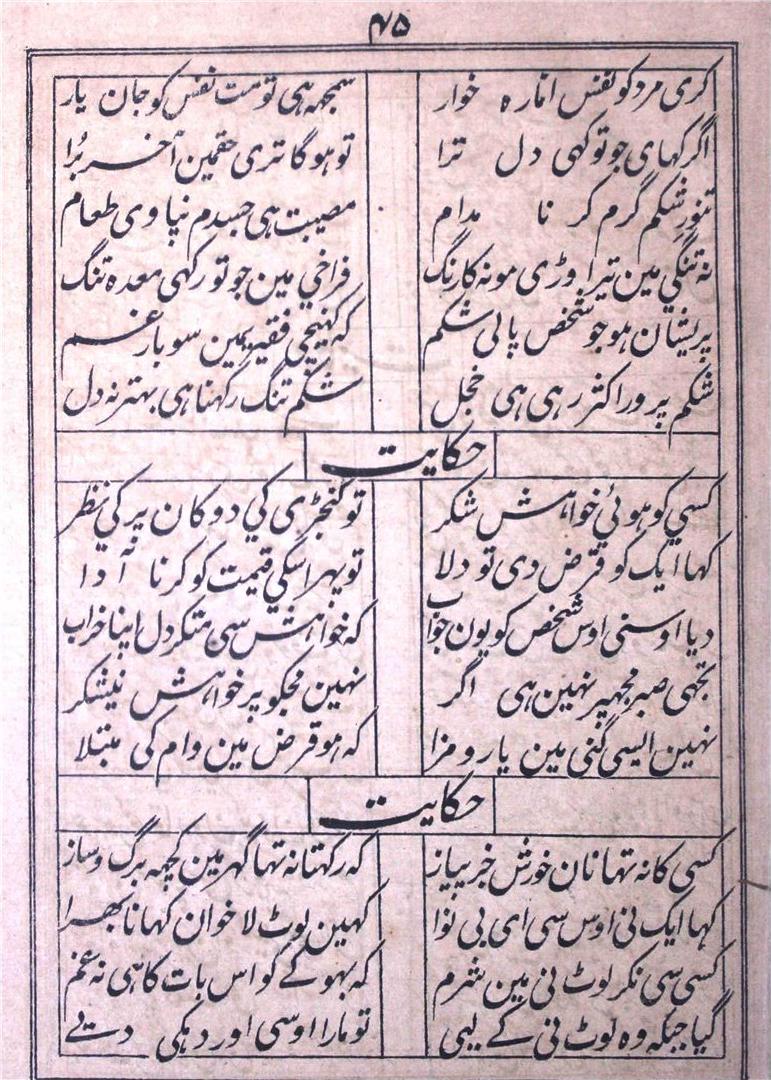 ۴۵
کری مرد کو نفس امّارہ خوار سمجھہ ہی تو مت نفس کو جان یار
اگر کہای جو تو کہی دل ترا تو ہوگا تری حقمین آخر بُرا
تنورِ شکم گرم کرنا مدام مصیبت ہی جسدم نپاوی طعام
نہ تنگی مین تیرا وڑی مونہ کا رنگ فراخی مین جو تو رکہی معدہ تنگ
پریشان ہو جو شخص پالی شکم کہ کہنیچی فقیریمین سو بار غم
شکم پرور اکثر رہی ہی خجل شکم تنگ رکہنا ہی بہتر نہ دل
حکایت
کسی کو ہوئی خواہش شکر تو کنجڑی کی دوکان پر کی نظر
کہا ایک کو قرض دی تو دلا تو پہر اسکی قیمت کو کرنا آدا
دیا اوسنی اوس شخص کو یون جواب کہ خواہش سی متکر دل اپنا خراب
تجہی صبر مجہپر نہین ہی اگر نہین مجکو پر خواہش نیشکر
نہین ایسی گنی مین یارو مزا کہ ہو قرض مین وام کی مبتلا
حکایت
کسی کا نہ تہا نان خورش خبر پیاز کہ رکہتا نہ تہا گہر مین کچہہ برگ وساز
کہا ایک نی اوس سی ای بی نوا کہین لوٹ لا خوان کہانا بھرا
کسی سی نکر لوٹ نی مین شرم کہ بہوکے کو اس بات کا ہی نہ غم
گیا جبکہ وہ لوٹ نی کے لیی تو مارا اوسی اور دہکی دیے